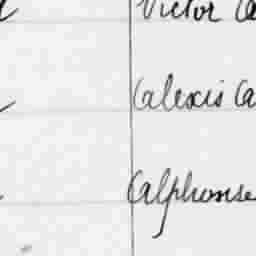 Victor
Alexis Ca
Alphonse